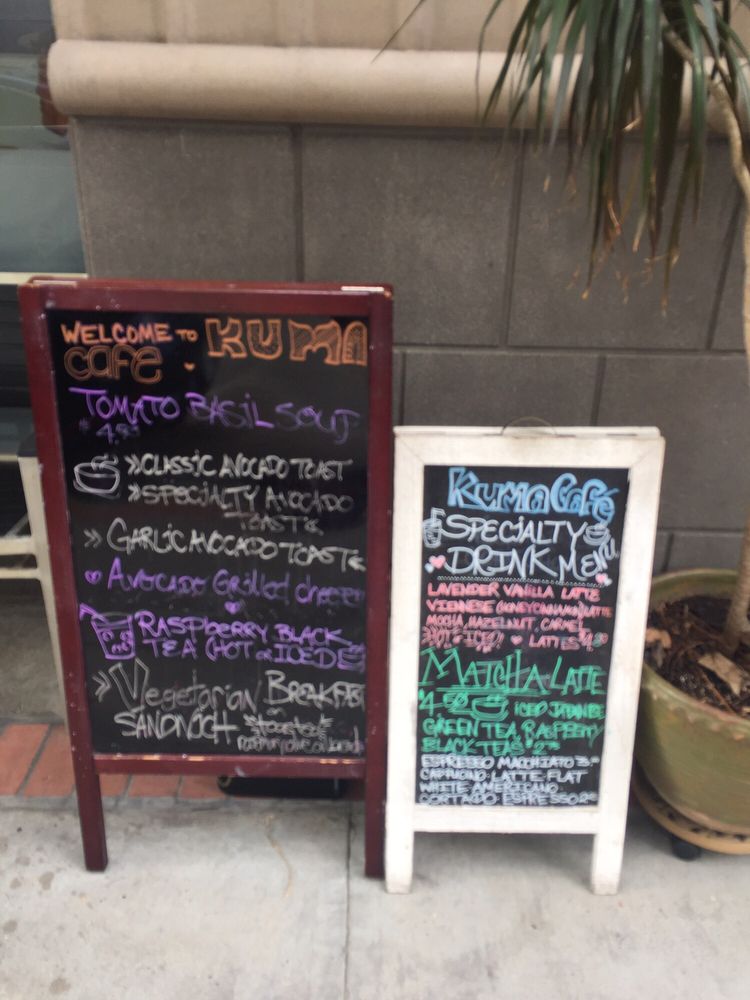 WELCOME TO KUMA
CAFE
TOMATO BASIL SOUP
$4.95
» CLASSIC AVOCADO TOAST
» SPECIALTY AVOCADO
TOAST «
» GARLIC AVOCADO TOAST «
AVOCADO GRILLED cheese
RASPBERRY BLACK
TEA (HOT or ICED
» Vegetarian BREAKFAST
SANDWICH *toasted*
Kuma Café
SPECIALTY
DRINK MENU
LAVENDER VANILLA LATTE
VIENNESE (HONEYCINNAMON) LATTE
MOCHA, HAZELNUT, CARMEL
LATTES
MATCHA LATTE
ICED
GREEN TEA, RASPBERRY
BLACK TEAS
ESPRESSO MACCHIATO
CAPPUCINO LATTE FLAT
WHITE AMERICANO
CORTADO ESPRESSO